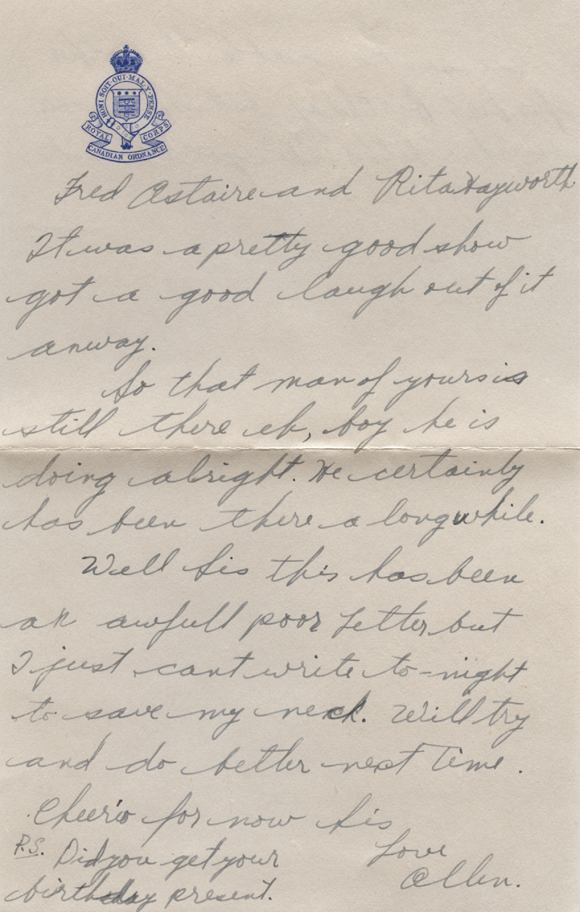 HONI·SOIT·QUI·MAL·Y·PENSE
ROYAL CORPS
CANADIAN ORDNANCE
Fred Astaire and Rita Hayworth
It was a pretty good show
got a good laugh out of it
anway.
So that man of yours is
still there eh, boy he is
doing alright. He certainly
has been there a long while.
Well Sis this has been
an awfull poor letter but
I just cant write to-night
to save my neck. Will try
and do better next time.
Cheerio for now Sis
Love
Allen.
P.S. Did you get your
birthday present.